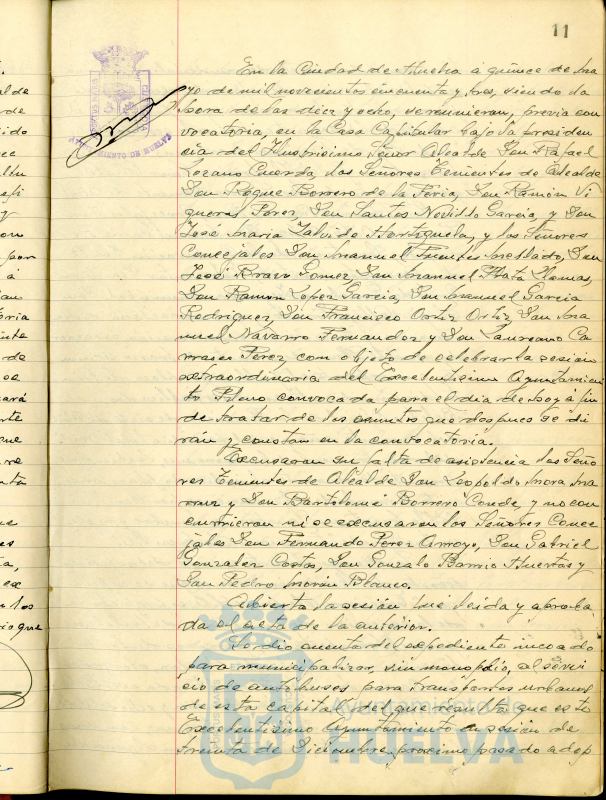 11
En la Ciudad de Huelva a quince de ma
yo de mil novecientos cincuenta y tres, siendo la
hora de las diez y ocho, se reunieron, previa con
vocatoria, en la Casa Capitular bajo la presiden
cia del Ilustrísimo Señor Alcalde Don Rafael
Lozano Cuerda, los Señores Tenientes de Alcalde
Don Roque Borrero de la Feria, Don Ramón Vi
gueras Perez, Don Santos Novillo García, y Don
José María Zalvide Hortigüela, y los Señores
Concejales Don Manuel Fuentes Mellado, Don
José Bravo Gomez, Don Manuel Mata Llamas,
Don Ramon Lopez García, Don Manuel García
Rodriguez, Don Francisco Ortiz Ortiz, Don Ma
nuel Navarro Fernandez y Don Laureano Ca
rrasco Pérez, con objeto de celebrar la sesión
extraordinaria del Excelentísimo Ayuntamien
to Pleno convocada para el día de hoy á fin
de tratar de los asuntos que despues se di
rán y constan en la convocatoria.
Excusaron su falta de asistencia los Seño
res Tenientes de Alcalde Don Leopoldo Mora
y Don Bartolomé Borrero Conde, y no con
currieron ni se excusaron los Señores Conce
jales Don Fernando Perez Arroyo, Don Gabriel
Gonzalez Costas, Don Gonzalo Barrio Huertas y
Don Pedro Morón Blanco.
Abierta la sesión fué leida y aproba
da el acta de la anterior.
Se dio cuenta del expediente incoado
para municipalizar, sin monopolio, el servi
cio de autobuses para transportes urbanos
de esta capital, del que resulta que este
Excelentísimo Ayuntamiento en sesión de
treinta de Diciembre próximo pasado adop
AYUNTAMIENTO DE HUELVA
Ayuntamiento de
HUELVA